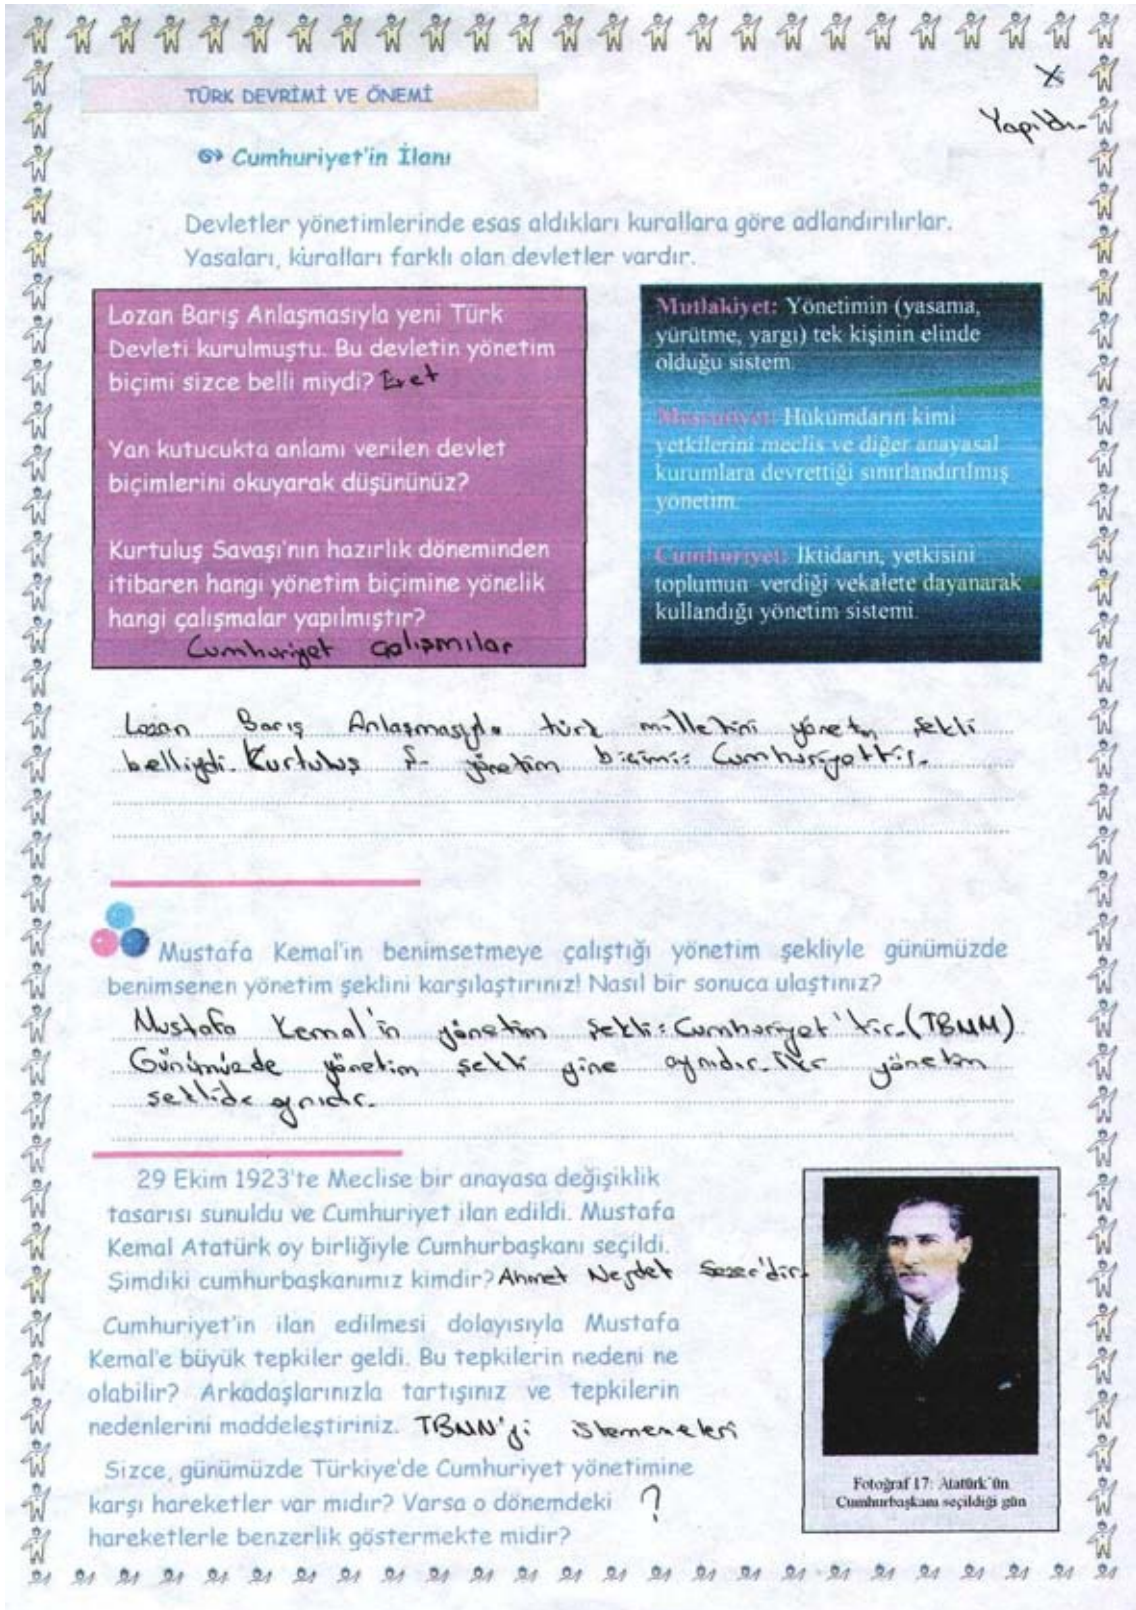 TÜRK DEVRİMİ VE ÖNEMİ
Yapıldı.
Cumhuriyet'in İlanı
Devletler yönetimlerinde esas aldıkları kurallara göre adlandırılırlar.
Yasaları, kuralları farklı olan devletler vardır.
Lozan Barış Anlaşmasıyla yeni Türk
Devleti kurulmuştu. Bu devletin yönetim
biçimi sizce belli miydi? Evet
Yan kutucukta anlamı verilen devlet
biçimlerini okuyarak düşününüz?
Kurtuluş Savaşı'nın hazırlık döneminden
itibaren hangi yönetim biçimine yönelik
hangi çalışmalar yapılmıştır?
Cumhuriyet çalışmılar
Mutlakiyet: Yönetimin (yasama,
yürütme, yargı) tek kişinin elinde
olduğu sistem.
Meşrutiyet: Hükümdarın kimi
yetkilerini meclis ve diğer anayasal
kurumlara devrettiği sınırlandırılmış
yönetim.
Cumhuriyet: İktidarın, yetkisini
toplumun verdiği vekalete dayanarak
kullandığı yönetim sistemi.
Lozan Barış Anlaşmasıyla türk milletini yönetim şekli
belliydi. Kurtuluş S. yönetim biçimi: Cumhuriyettir.
Mustafa Kemal'in benimsetmeye çalıştığı yönetim şekliyle günümüzde
benimsenen yönetim şeklini karşılaştırınız! Nasıl bir sonuca ulaştınız?
Mustafa Kemal'in yönetim şekli: Cumhuriyet'tir. (TBMM)
Günümüzde yönetim şekli yine aynıdır. yönetim
şeklide aynıdır.
29 Ekim 1923'te Meclise bir anayasa değişiklik
tasarısı sunuldu ve Cumhuriyet ilan edildi. Mustafa
Kemal Atatürk oy birliğiyle Cumhurbaşkanı seçildi.
Şimdiki cumhurbaşkanımız kimdir? Ahmet Nejdet Sezer'dir.
Cumhuriyet'in ilan edilmesi dolayısıyla Mustafa
Kemal'e büyük tepkiler geldi. Bu tepkilerin nedeni ne
olabilir? Arkadaşlarınızla tartışınız ve tepkilerin
nedenlerini maddeleştiriniz. TBMM'yi istememeleri
Sizce, günümüzde Türkiye'de Cumhuriyet yönetimine
karşı hareketler var mıdır? Varsa o dönemdeki ?
hareketlerle benzerlik göstermekte midir?
Fotoğraf 17: Atatürk'ün
Cumhurbaşkanı seçildiği gün